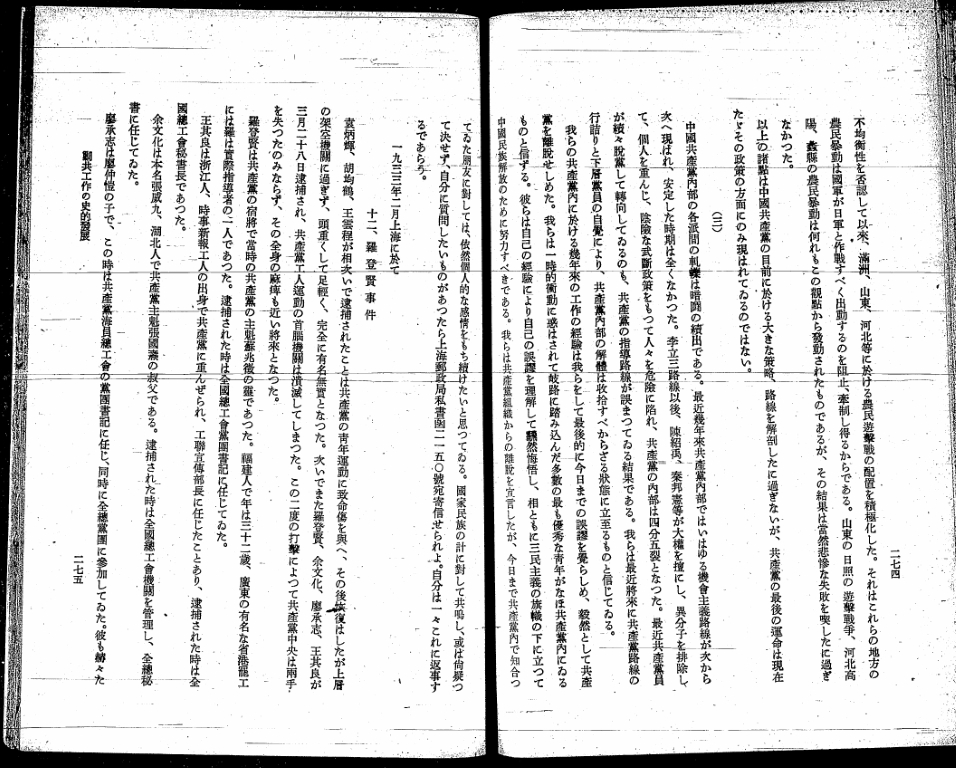 二七四
不均衡性を否認して以來、滿洲、山東、河北等に於ける農民遊擊戰の配置を積極化した。それはこれらの地方の
農民暴動は國軍が日軍と作戰すべく出動するのを阻止、牽制し得るからである。山東の日照の遊擊戰爭、河北高
陽、蠡縣の農民暴動は何れもこの觀點から發動されたものであるが、その結果は當然悲慘な失敗を喫したに過ぎ
なかつた。
以上の諸點は中國共產黨の目前に於ける大きな策略、路線を解剖したに過ぎないが、共產黨の最後の運命は現在
たゞその政策の方面にのみ現はれてゐるのではない。
(三)
中國共產黨內部の各派間の軋轢は暗鬪の續出である。最近幾年來共產黨內部ではいはゆる機會主義路線が次から
次へ現はれ、安定した時期は全くなかつた。李立三路線以後、陳紹禹、秦邦憲等が大權を擅にし、異分子を排除し
て、個人を重んじ、陰險な武斷政策をもつて人々を危險に陷れ、共產黨の內部は四分五裂となつた。最近共產黨員
が續々脫黨して轉向してゐるのも、共產黨の指導路線が誤まつてゐる結果である。我らは最近將來に共產黨路線の
行詰りと下層黨員の自覺により、共產黨內部の解體は收拾すべからざる狀態に立至るものと信じてゐる。
我らの共產黨內に於ける幾年來の工作の經驗は我らをして最後的に今日までの誤謬を覺らしめ、毅然として共產
黨を離脫せしめた。我らは一時的衝動に惑はされて岐路に踏み込んだ多數の最も優秀な青年がなほ共產黨內にゐる
ものと信ずる。彼らは自己の經驗により自己の誤謬を理解して飜然悔悟し、相ともに三民主義の旗幟の下に立つて
中國民族解放のために努力すべきである。我らは共產黨組織からの離脫を宣言したが、今日まで共產黨內で知合つ
てゐた朋友に對しては、依然個人的な感情をもち續けたいと思つてゐる。國家民族の計に對して共鳴し、或は尙疑つ
て決せず、自分に質問したいものがあつたら上海郵政局私書函二一五〇號宛寄信せられよ。自分は一々これに返事す
るであらう。
一九三三年二月上海に於て
十二、羅登賢事件
袁炳輝、胡均鶴、王雲程が相次いで逮捕されたことは共產黨の靑年運動に致命傷を與へ、その後恢復はしたが上層
の架空機關に過ぎず、頭重くして足輕く、完全に有名無實となつた。次いでまた羅登賢、余文化、廖承志、王其良が
三月二十八日逮捕され、共產黨工人運動の首腦機關は潰滅してしまつた。この二度の打擊によつて共產黨中央は兩手
を失つたのみならず、その全身の麻痺も近い將來となつた。
羅登賢は共產黨の宿將で當時の共產黨の主魁蘇兆徵の黨であつた。福建人で年は三十二歲、廣東の有名な省港罷工
には羅は實際指導者の一人であつた。逮捕された時は全國總工會黨團書記に任じてゐた。
王其良は浙江人、時事新報工人の出身で共產黨に重んぜられ、工聯宣傳部長に任じたことあり、逮捕された時は全
國總工會秘書長であつた。
余文化は本名張威九、湖北人で共產黨主魁張國燾の叔父である。逮捕された時は全國總工會機關を管理し、全總秘
書に任じてゐた。
廖承志は廖仲愷の子で、この時は共產黨海員總工會の黨團書記に任じ、同時に全總黨團に參加してゐた。彼も赫々た
剿共工作の史的發展
二七五